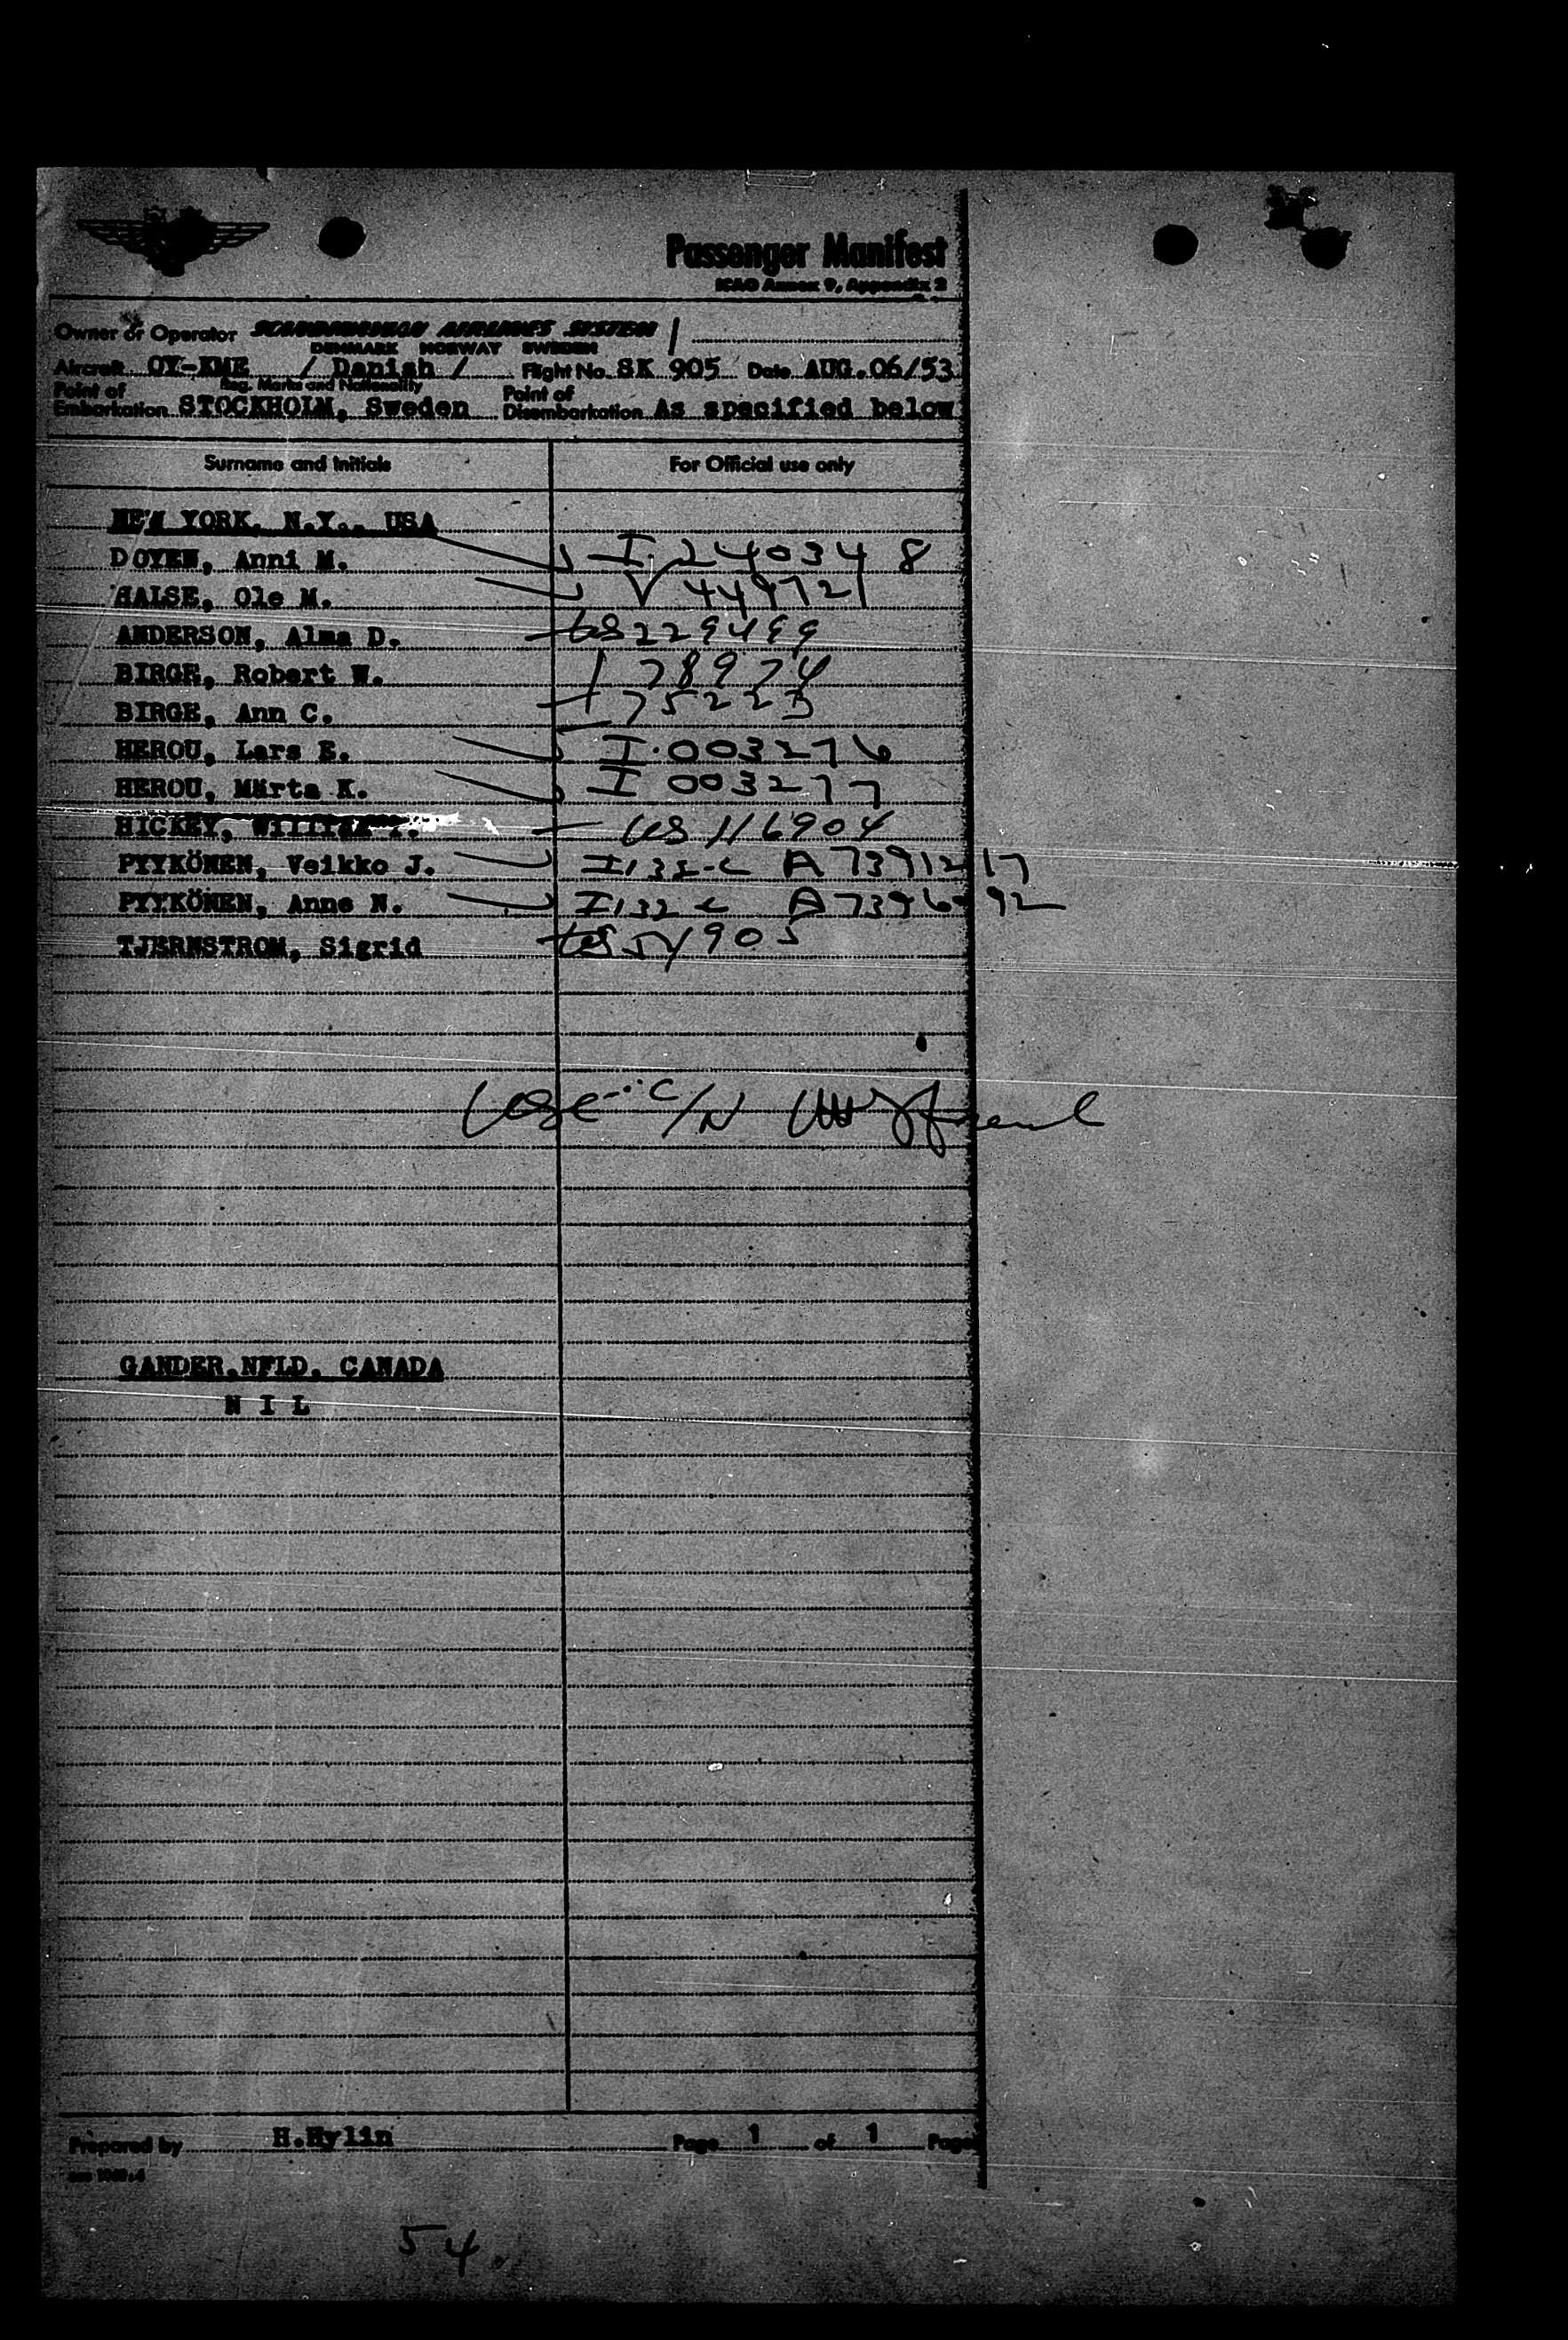 Passenger Manifest
ICAO Annex 9, Appendix 2
Owner or Operator SCANDINAVIAN AIRLINES SYSTEM /
DENMARK NORWAY SWEDEN
Aircraft OY-KME / Danish / Flight No. SK 905 Date AUG. 06/53
Reg. Marks and Nationality
Point of Embarkation STOCKHOLM, Sweden Point of Disembarkation As specified below
Surname and Initials For Official use only
NEW YORK, N.Y., USA
DOYEN, Anni M. I. 240348
HALSE, Ole M. V 449721
ANDERSON, Alma D. US 229499
BIRGE, Robert W. 78974
BIRGE, Ann C. 75223
HEROU, Lars E. I. 003276
HEROU, Märta K. I 003277
HICKEY, US 116904
PYYKÖNEN, Veikko J. I132-C A7391217
PYYKÖNEN, Anne N. I132 C
TJERNSTROM, Sigrid US 54905
C/N
GANDER, NFLD. CANADA
N I L
Prepared by H.Hylin Page 1 of 1 Page
54